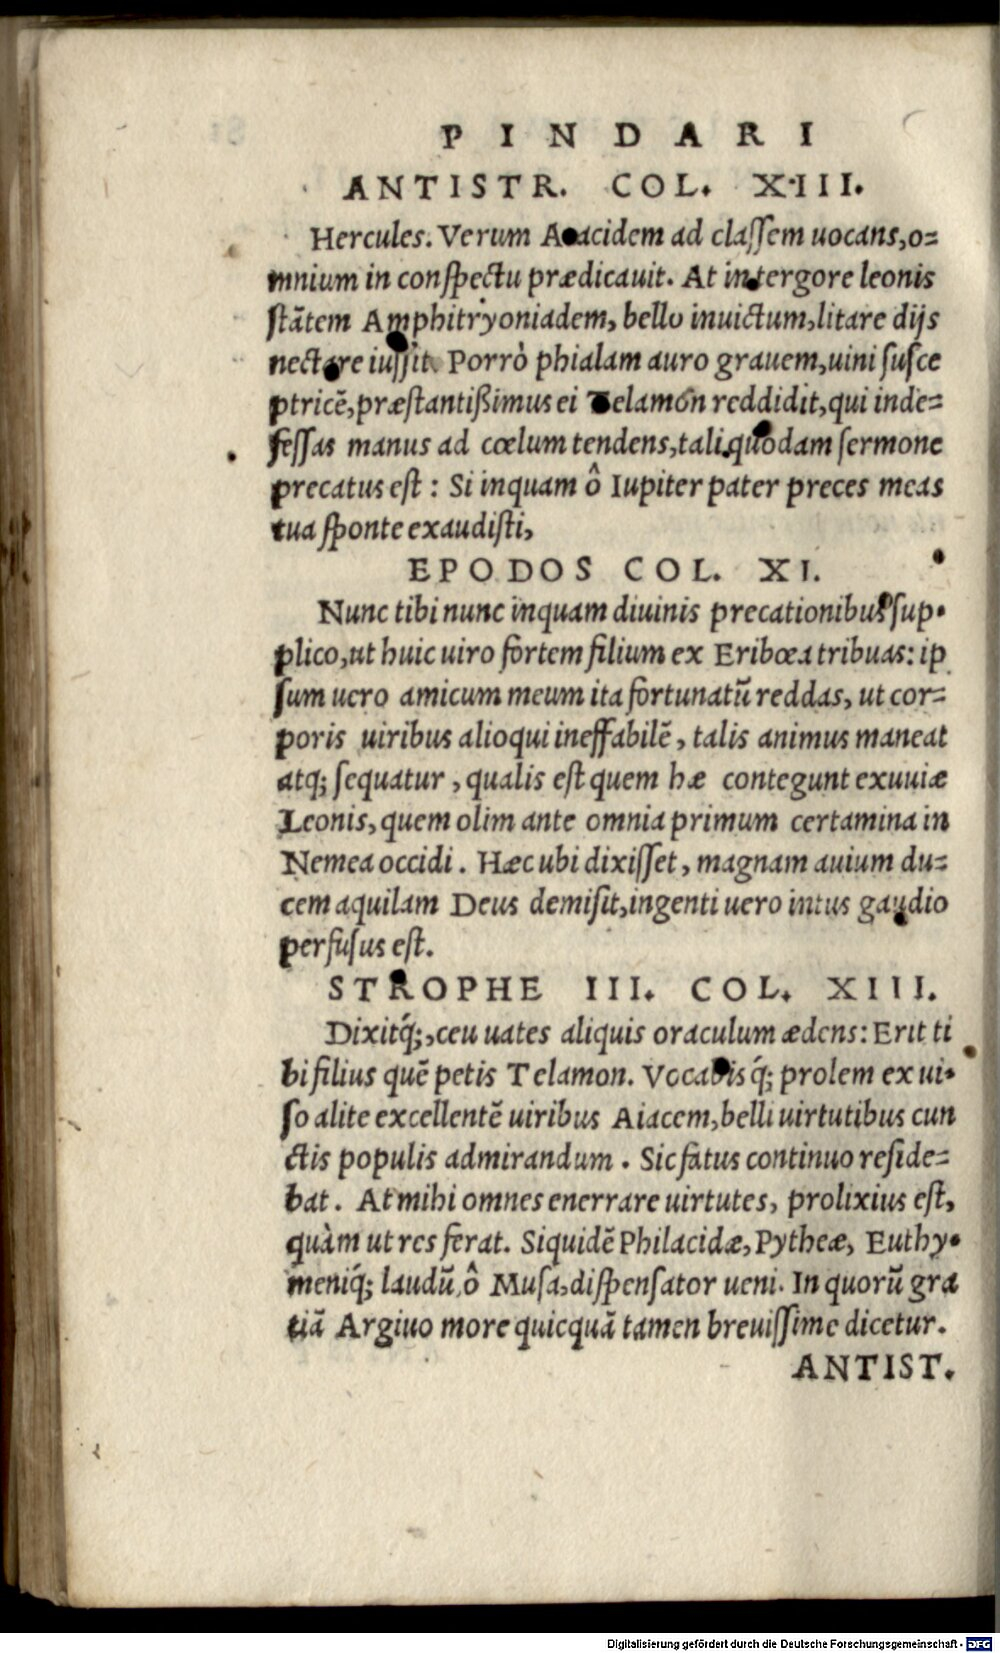 PINDARI
ANTISTR. COL. XIII.
Hercules. Verum Aeacidem ad classem uocans, o=
mnium in conspectu prædicauit. At in tergore leonis
stãtem Amphitryoniadem, bello inuictum, litare dijs
nectare iussit. Porrò phialam auro grauem, uini susce
ptricẽ, præstantißimus ei Telamon reddidit, qui inde=
fessas manus ad cœlum tendens, tali quodam sermone
precatus est: Si inquam ô Iupiter pater preces meas
tua sponte exaudisti,
EPODOS COL. XI.
Nunc tibi nunc inquam diuinis precationibus sup-
plico, ut huic uiro fortem filium ex Eribœa tribuas: ip
sum uero amicum meum ita fortunatũ reddas, ut cor=
poris uiribus alioqui ineffabilẽ, talis animus maneat
atq; sequatur, qualis est quem hæ contegunt exuuiæ
Leonis, quem olim ante omnia primum certamina in
Nemea occidi. Hæc ubi dixisset, magnam auium du=
cem aquilam Deus demisit, ingenti uero intus gaudio
perfusus est.
STROPHE III. COL. XIII.
Dixitq́;, ceu uates aliquis oraculum ædens: Erit ti
bi filius quẽ petis Telamon. Vocabisq́; prolem ex ui-
so alite excellentẽ uiribus Aiacem, belli uirtutibus cun
ctis populis admirandum. Sic fatus continuo reside=
bat. At mihi omnes enerrare uirtutes, prolixius est,
quàm ut res ferat. Siquidẽ Philacidæ, Pytheæ, Euthy-
meniq́; laudũ, ô Musa, dispensator ueni. In quorũ gra
tiã Argiuo more quicquã tamen breuissime dicetur.
ANTIST.
Digitalisierung gefördert durch die Deutsche Forschungsgemeinschaft - DFG